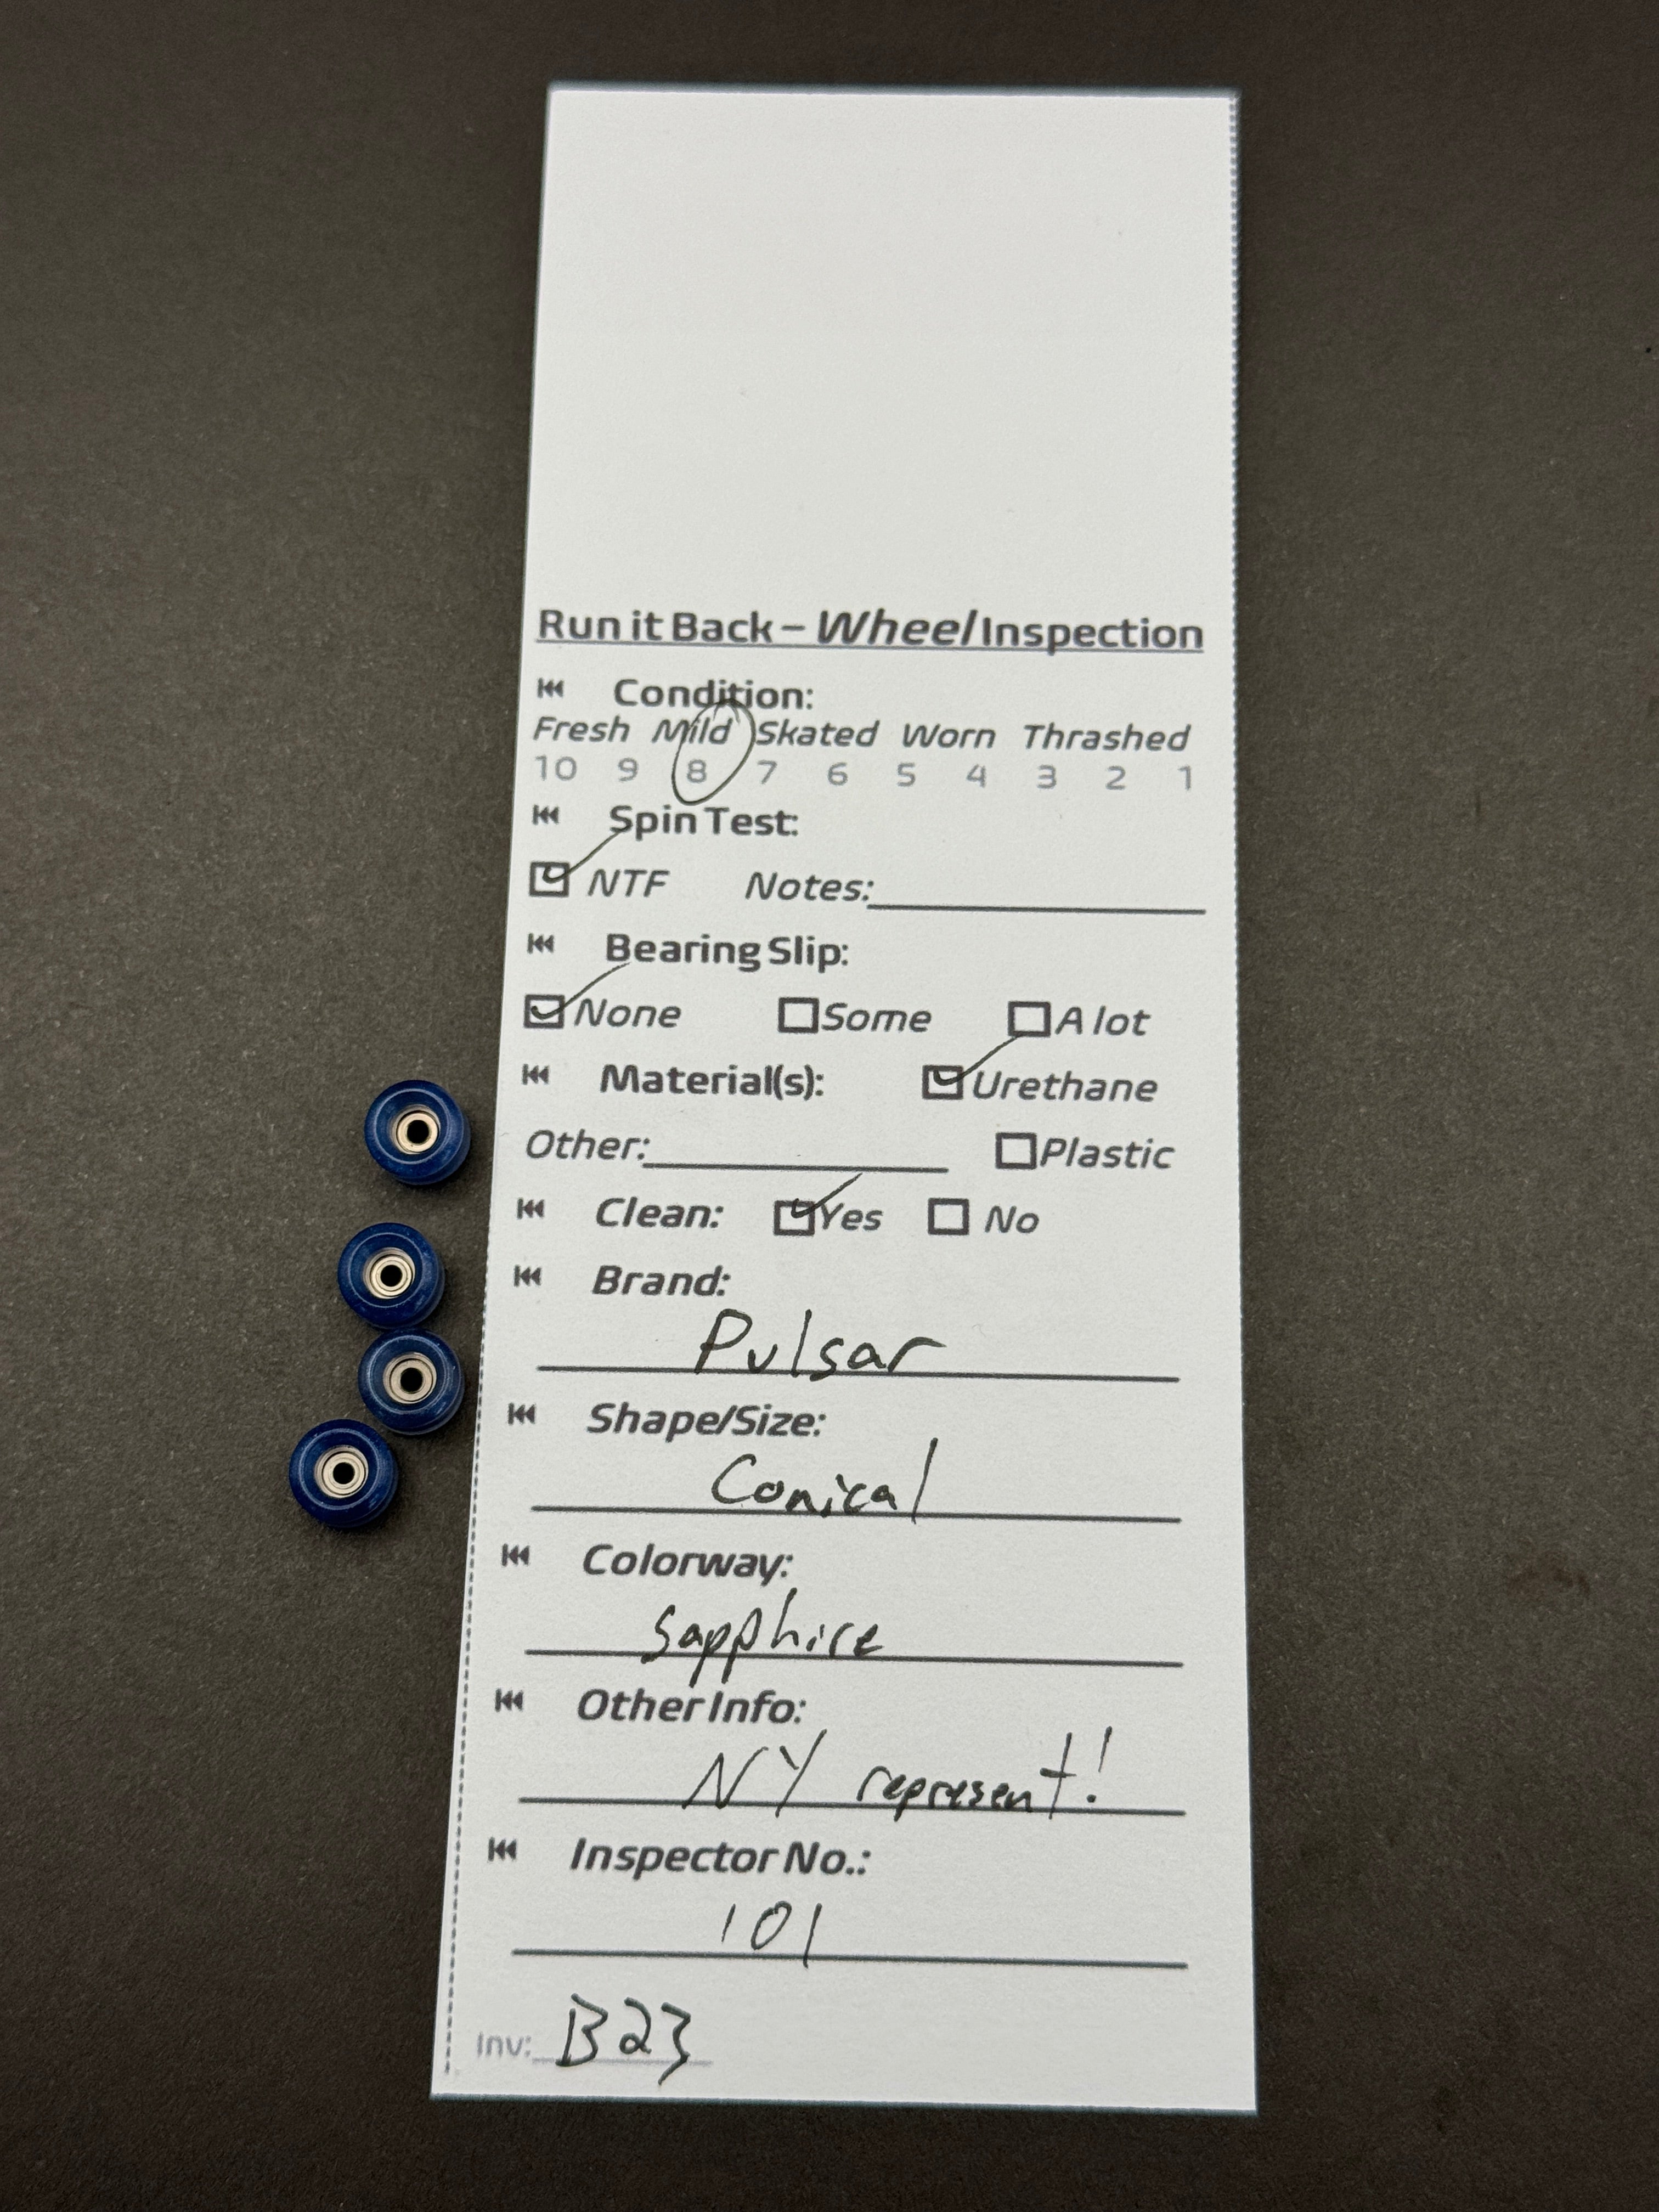 Run it Back – Wheel Inspection
Condition:
Fresh Mild Skated Worn Thrashed
10 9 8 7 6 5 4 3 2 1
Spin Test:
NTF Notes:
Bearing Slip:
None Some A lot
Material(s): Urethane
Other: Plastic
Clean: Yes No
Brand:
Pulsar
Shape/Size:
Conical
Colorway:
Sapphire
Other Info:
NY represent!
Inspector No.:
101
Inv: B23